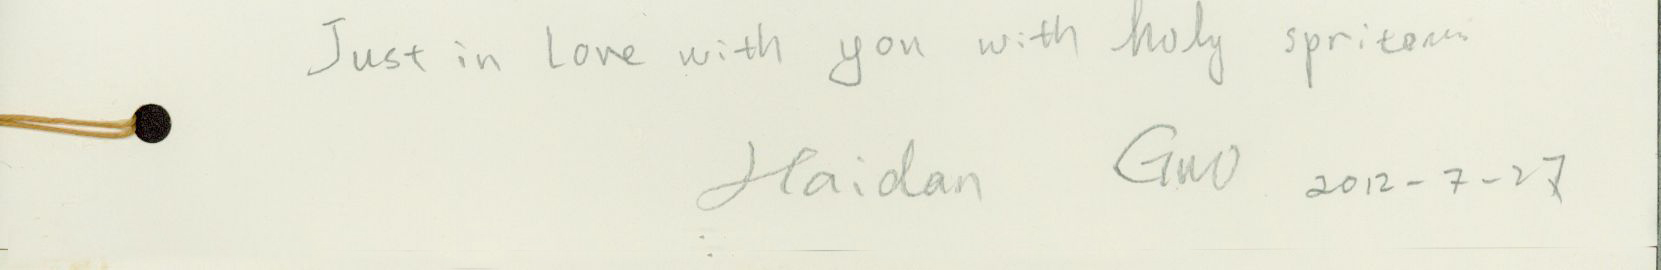 Just in Love with you with holy
Haidan Guo 2012-7-27